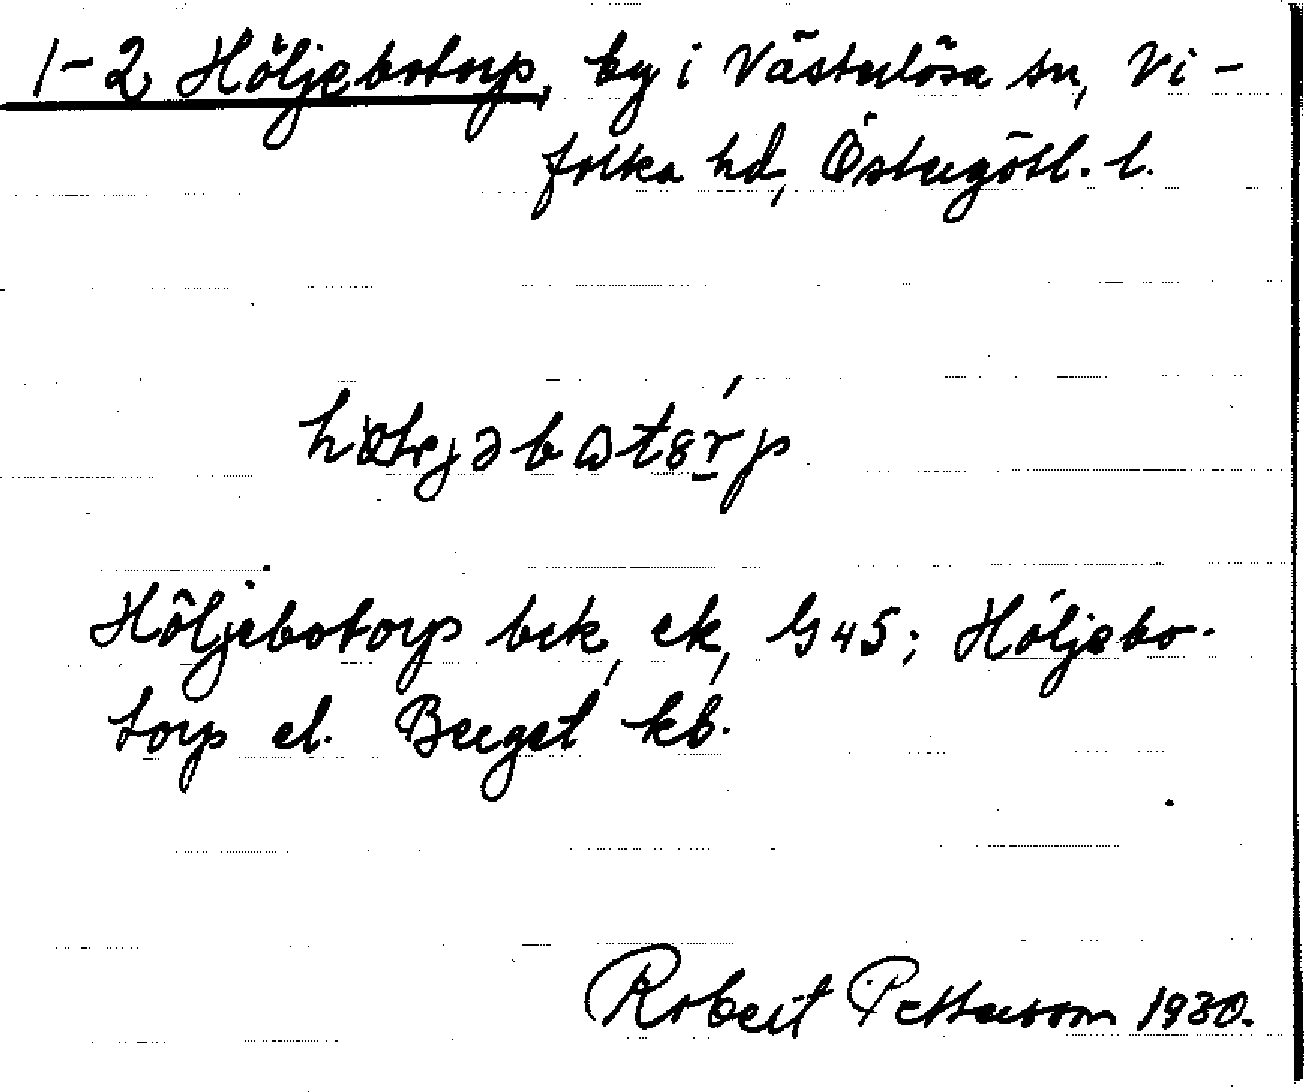 1-2 Höljebotorp, by i Västerlösa sn, Vi-
folka hd, Östergötl. l.
Höljebotorp bek, ek, G45; Höljebo-
torp el. Berget kb.
Robert Pettersson 1930.